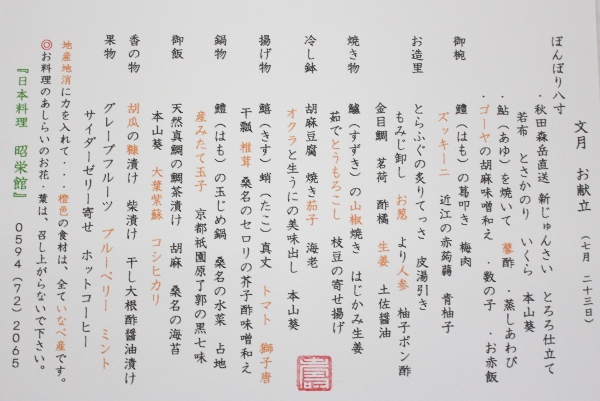 文月 お献立 (七月 二十三日)
ぼんぼり八寸
・秋田森岳直送 新じゅんさい とろろ仕立て
若布 とさかのり いくら 本山葵
・鮎(あゆ)を焼いて 蓼酢 ・蒸しあわび
・ゴーヤの胡麻味噌和え ・数の子 ・お赤飯
御椀 鱧(はも)の葛叩き 梅肉
ズッキーニ 近江の赤蒟蒻 青柚子
お造里 とらふぐの炙りてっさ 皮湯引き
もみじ卸し お葱 より人参 柚子ポン酢
金目鯛 茗荷 酢橘 生姜 土佐醬油
焼き物 鱸(すずき)の山椒焼き はじかみ生姜
茹でとうもろこし 枝豆の寄せ揚げ
冷し鉢 胡麻豆腐 焼き茄子 海老
オクラと生うにの美味出し 本山葵
揚げ物 鱚(きす)蛸(たこ)真丈 トマト 獅子唐
干瓢 椎茸 桑名のセロリの芥子酢味噌和え
鍋物 鱧(はも)の玉じめ鍋 桑名の水菜 占地
産みたて玉子 京都祇園原了郭の黒七味
御飯 天然真鯛の鯛茶漬け 胡麻 桑名の海苔
本山葵 大葉紫蘇 コシヒカリ
香の物 胡瓜の糠漬け 柴漬け 干し大根酢醬油漬け
果物 グレープフルーツ ブルーベリー ミント
サイダーゼリー寄せ ホットコーヒー
地産地消に力を入れて・・・橙色の食材は、全ていなべ産です。
◎お料理のあしらいのお花・葉は、召し上がらないで下さい。
『日本料理 昭栄館』 0594(72)2065